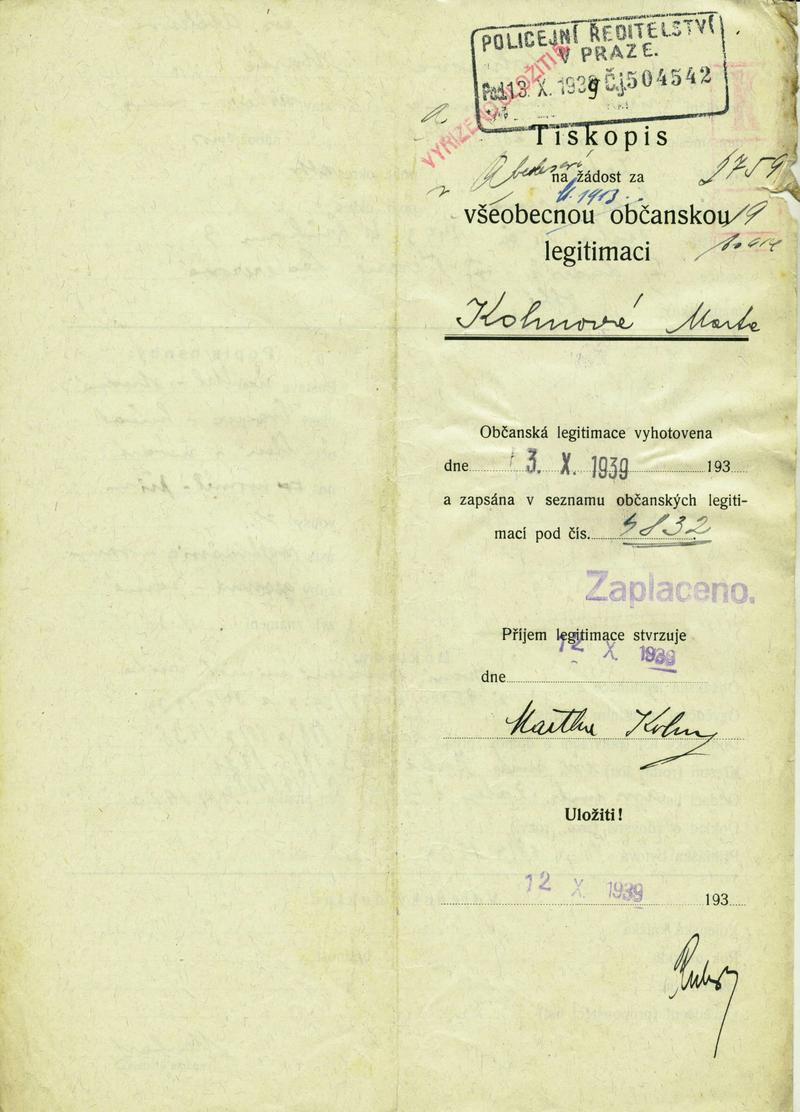 POLICEJNÍ ŘEDITELSTVÍ
V PRAZE.
Pod. 13. X. 1939 Čj. 504542
VYŘÍZENO ULOŽITI
Tiskopis
na žádost za 1759
1903
všeobecnou občanskou 19
legitimaci
Kohnové Marta
Občanská legitimace vyhotovena
dne 3. X. 1939 193
a zapsána v seznamu občanských legiti-
mací pod čís. 4832
Zaplaceno.
Příjem legitimace stvrzuje
12 X 1939
dne
Martha Kohn
Uložiti!
12 X 1939 193